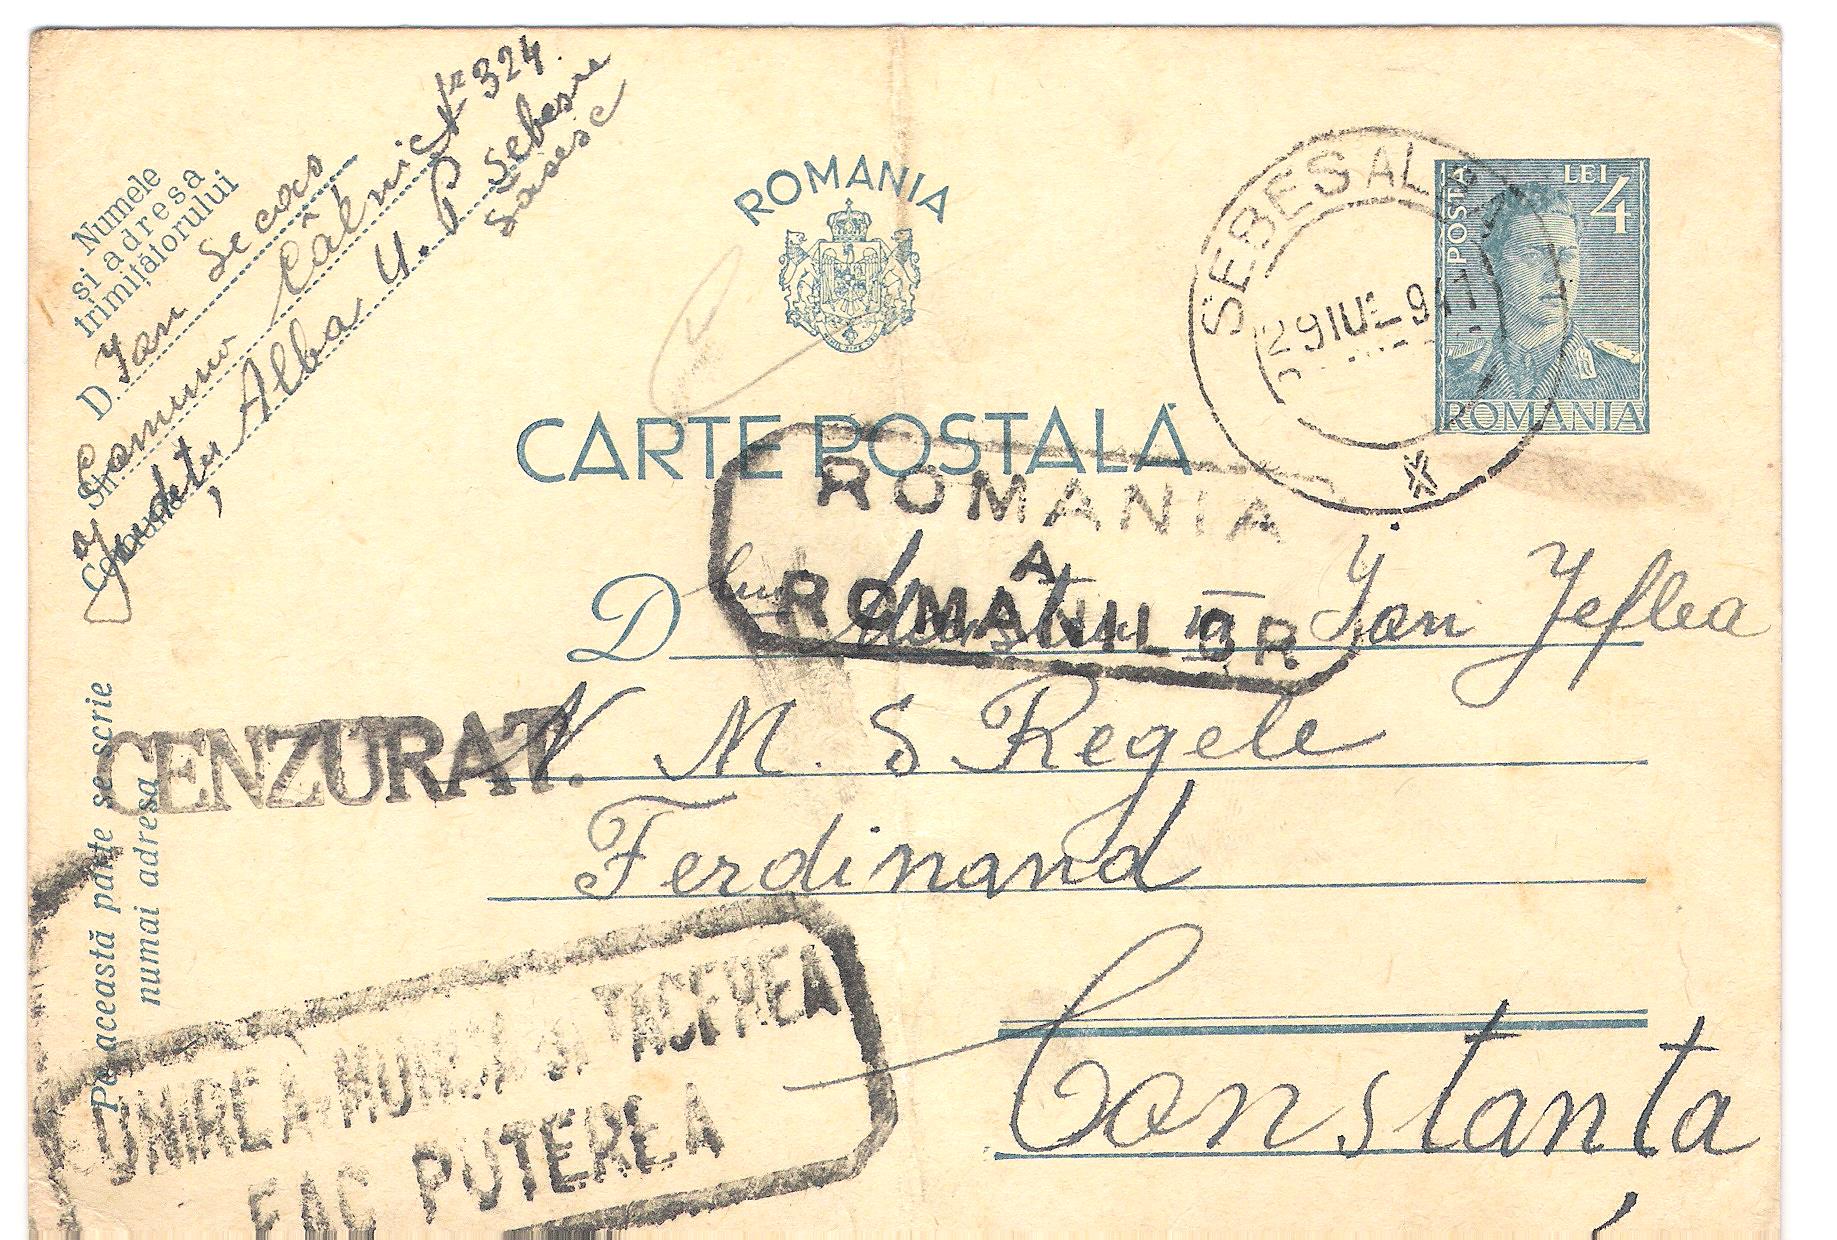 Numele
și adresa
trimițătorului
D. Ion Secaș
Str. Comuna Câlnic Nr 324.
Comuna Județu, Alba U. P Sebeșu
Sasesc
ROMANIA
POSTA LEI 4
ROMANIA
SEBEȘ ALBA
29 IUL 941
CARTE POSTALĂ
ROMANIA
A
ROMANILOR
D lui III Ion Jeflea
N. M. S Regele
Ferdinand
Constanța
CENZURAT.
Pe această parte se scrie
numai adresa
UNIREA-MUNCA SI TACEREA
FAC PUTEREA